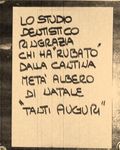 LO STUDIO
DENTISTICO
RINGRAZIA
CHI HA "RUBATO"
DALLA CANTINA
META' ALBERO
DI NATALE
"TANTI AUGURI"